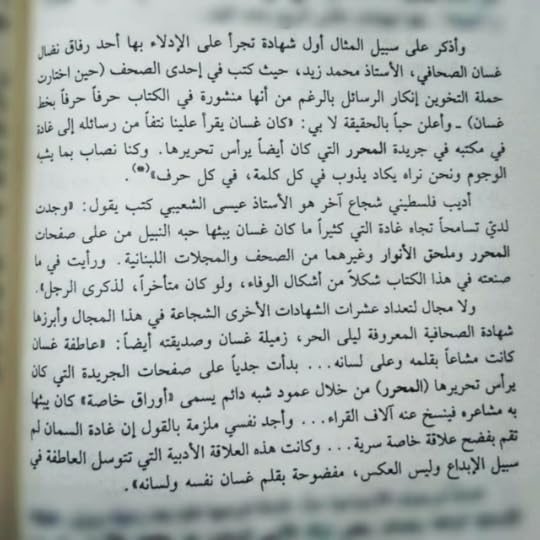 وأذكر على سبيل المثال أول شهادة تجرأ على الإدلاء بها أحد رفاق نضال
غسان الصحافي، الأستاذ محمد زيد، حيث كتب في إحدى الصحف (حين اختارت
حملة التخوين إنكار الرسائل بالرغم من أنها منشورة في الكتاب حرفاً حرفاً بخط
غسان) ـ وأعلن حباً بالحقيقة لا بي: «كان غسان يقرأ علينا نتفاً من رسائله إلى غادة
في مكتبه في جريدة المحرر التي كان أيضاً يرأس تحريرها. وكنا نصاب بما يشبه
الوجوم ونحن نراه يكاد يذوب في كل كلمة، في كل حرف»(*).
أديب فلسطيني شجاع آخر هو الأستاذ عيسى الشعيبي كتب يقول: «وجدت
لديّ تسامحاً تجاه غادة التي كثيراً ما كان غسان يبثها حبه النبيل من على صفحات
المحرر وملحق الأنوار وغيرهما من الصحف والمجلات اللبنانية. ورأيت في ما
صنعته في هذا الكتاب شكلاً من أشكال الوفاء، ولو كان متأخراً، لذكرى الرجل».
ولا مجال لتعداد عشرات الشهادات الأخرى الشجاعة في هذا المجال وأبرزها
شهادة الصحافية المعروفة ليلى الحر، زميلة غسان وصديقته أيضاً: «عاطفة غسان
كانت مشاعاً بقلمه وعلى لسانه... بدأت جدياً على صفحات الجريدة التي كان
يرأس تحريرها (المحرر) من خلال عمود شبه دائم يسمى «أوراق خاصة» كان يبثها
به مشاعره فينسخ عنه آلاف القراء... وأجد نفسي ملزمة بالقول إن غادة السمان لم
تقم بفضح علاقة خاصة سرية... وكانت هذه العلاقة الأدبية التي تتوسل العاطفة في
سبيل الإبداع وليس العكس، مفضوحة بقلم غسان نفسه ولسانه».